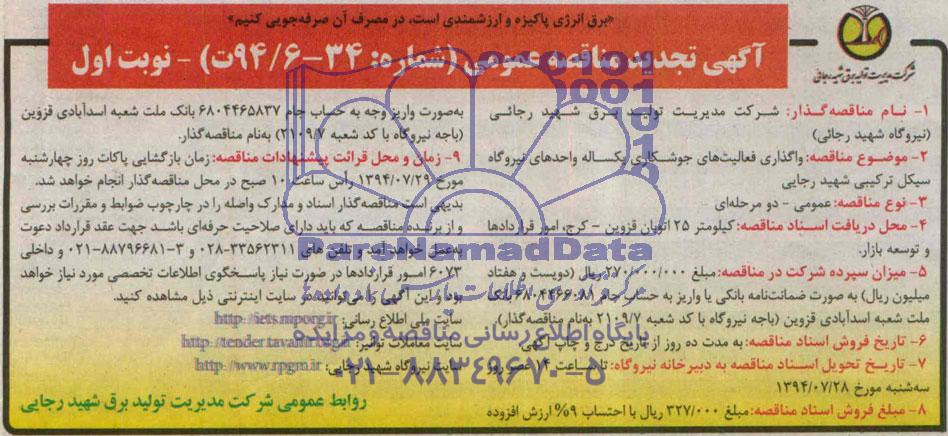 «برق انرژی پاکیزه و ارزشمندی است، در مصرف آن صرفه‌جویی کنیم»
آگهی تجدید مناقصه عمومی (شماره: ۳۴-۹۴/۶ت) - نوبت اول
شرکت مدیریت تولید برق شهید رجائی
۱- نام مناقصه‌گذار: شرکت مدیریت تولید برق شهید رجائی
(نیروگاه شهید رجائی)
۲- موضوع مناقصه: واگذاری فعالیت‌های جوشکاری یکساله واحدهای نیروگاه
سیکل ترکیبی شهید رجایی
۳- نوع مناقصه: عمومی - دو مرحله‌ای
۴- محل دریافت اسناد مناقصه: کیلومتر ۲۵ اتوبان قزوین - کرج، امور قراردادها
و توسعه بازار.
۵- میزان سپرده شرکت در مناقصه: مبلغ ۲۷۰/۰۰۰/۰۰۰ ریال (دویست و هفتاد
میلیون ریال) به صورت ضمانت‌نامه بانکی یا واریز به حساب جام بانک
ملت شعبه اسدآبادی قزوین (باجه نیروگاه با کد شعبه ۲۱۰۹/۷ به‌نام مناقصه‌گذار).
۶- تاریخ فروش اسناد مناقصه: به مدت ده روز از تاریخ درج و چاپ آگهی
۷- تاریخ تحویل اسناد مناقصه به دبیرخانه نیروگاه: تا ساعت ۱۴ عصر روز
سه‌شنبه مورخ ۱۳۹۴/۰۷/۲۸
۸- مبلغ فروش اسناد مناقصه: مبلغ ۳۲۷/۰۰۰ ریال با احتساب ۹% ارزش افزوده
به‌صورت واریز وجه به حساب جام ۶۸۰۴۴۶۵۸۳۷ بانک ملت شعبه اسدآبادی قزوین
(باجه نیروگاه با کد شعبه ۲۱۰۹/۷) به‌نام مناقصه‌گذار.
۹- زمان و محل قرائت پیشنهادات مناقصه: زمان بازگشایی پاکات روز چهارشنبه
مورخ ۱۳۹۴/۰۷/۲۹ رأس ساعت ۱۰ صبح در محل مناقصه‌گذار انجام خواهد شد.
بدیهی است مناقصه‌گذار اسناد و مدارک واصله را در چارچوب ضوابط و مقررات بررسی
و از برنده مناقصه که باید دارای صلاحیت حرفه‌ای باشد جهت عقد قرارداد دعوت
به‌عمل خواهد آمد و تلفن های ۳۳۵۶۲۳۱۱-۰۲۸ و ۳-۸۸۷۹۶۶۸۱-۰۲۱ و داخلی
۶۰۷۳ امور قراردادها در صورت نیاز پاسخگوی اطلاعات تخصصی مورد نیاز خواهد
بود و این آگهی را می‌توانید در سایت اینترنتی ذیل مشاهده کنید.
سایت ملی اطلاع رسانی: http://iets.mporg.ir
سایت معاملات توانیر: http://tender.tavanir.org.ir
سایت نیروگاه شهید رجایی: http://www.rpgm.ir
روابط عمومی شرکت مدیریت تولید برق شهید رجایی
ParsNamadData
پایگاه اطلاع رسانی مناقصه و مزایده
۰۲۱-۸۸۳۴۹۶۷۰-۵